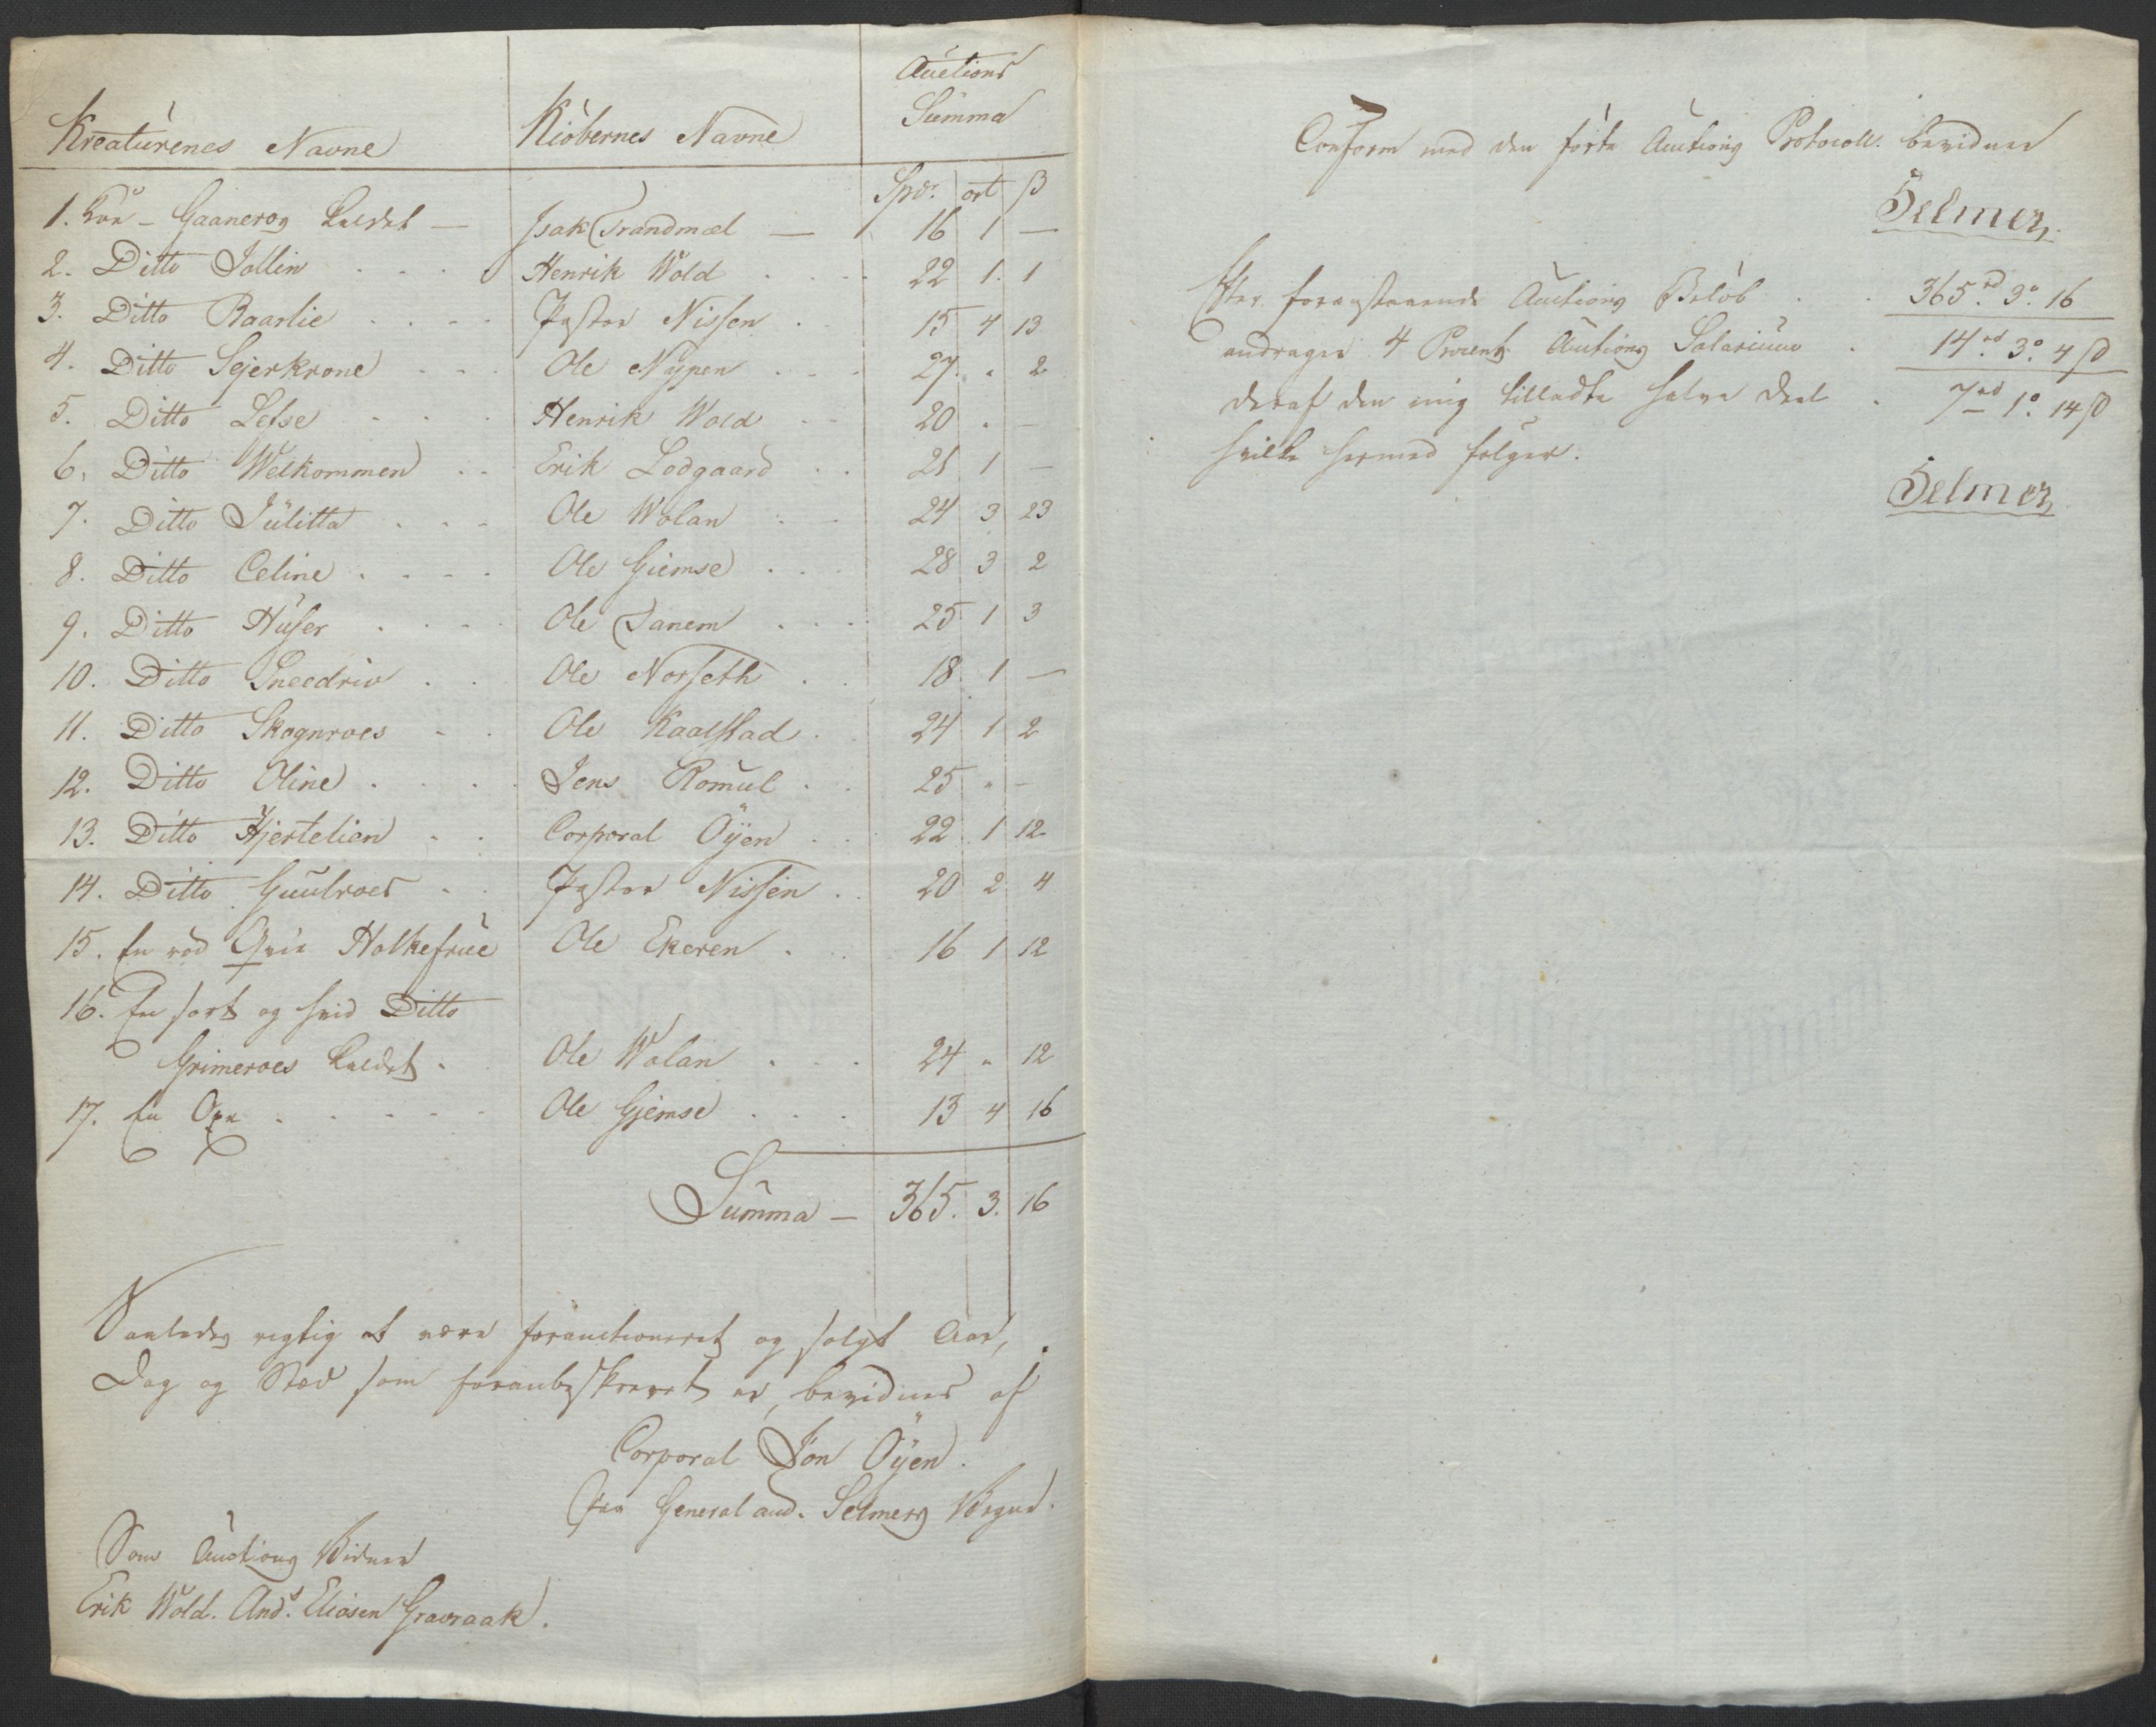 Kreaturenes Navne | Kiöbernes Navne | Auctions Summa
Spdr. | ort | β
1. Koe - Gaaneros kaldet — | Isak Trandmæl — | 16 | 1 | —
2. Ditto Jollin . . . | Henrik Wold . . . | 22 | 1. | 1
3. Ditto Baarlie . . . | Pastor Nissen . . | 15 | 4 | 13
4. Ditto Sejerkrone . . | Ole Nÿpen . . . | 27. | " | 2
5. Ditto Lefse . . . | Henrik Wold . . | 20 | " | –
6. Ditto Welkommen . . | Erik Lodgaard . . | 21 | 1 | —
7. Ditto Julitta . . . | Ole Wolan . . | 24 | 3 | 23
8. Ditto Celine . . . . | Ole Giemse . . | 28 | 3 | 2
9. Ditto Huser . . . . | Ole Tanem . . . . | 25 | 1 | 3
10. Ditto Sneedriv . . | Ole Norseth . . | 18 | 1 | —
11. Ditto Skognroes . . | Ole Kaalstad . . | 24 | 1 | 2
12. Ditto Oline . . . . | Jens Romul . . | 25 | " | –
13. Ditto Hjertelien . . | Corporal Öÿen . . | 22 | 1 | 12
14. Ditto Guulroes . . | Pastor Nissen . . | 20 | 2 | 4
15. En rød Qvie Holkefrue | Ole Ekeren . . | 16 | 1 | 12
16. En sort og hvid Ditto
Grimeroes kaldet . | Ole Wolan . . . | 24 | " | 12
17. En Oxe . . . . . | Ole Gjemse . . . | 13 | 4 | 16
Summa — 365. 3. 16
Saaledes rigtig at være forauctioneret og solgt Aar,
Dag og Sted som foranbeskrevet er, bevidnes af
Corporal Jon Öÿen.
paa General aud. Selmers Vegne.
Som Auctions Vidner
Erik Wold. Ands. Eliasen Gravraak.
Conform med den førte Auctions Protocoll. bevidner
Selmer.
Efter foranstaaende Auctions Beløb . . 365rd 3o 16
andrager 4 Procents Auctions Salarium . 14rd 3o 4 β
deraf den mig tilladte halve Deel . 7rd 1o 14 β
hvilke hermed følger.
Selmer